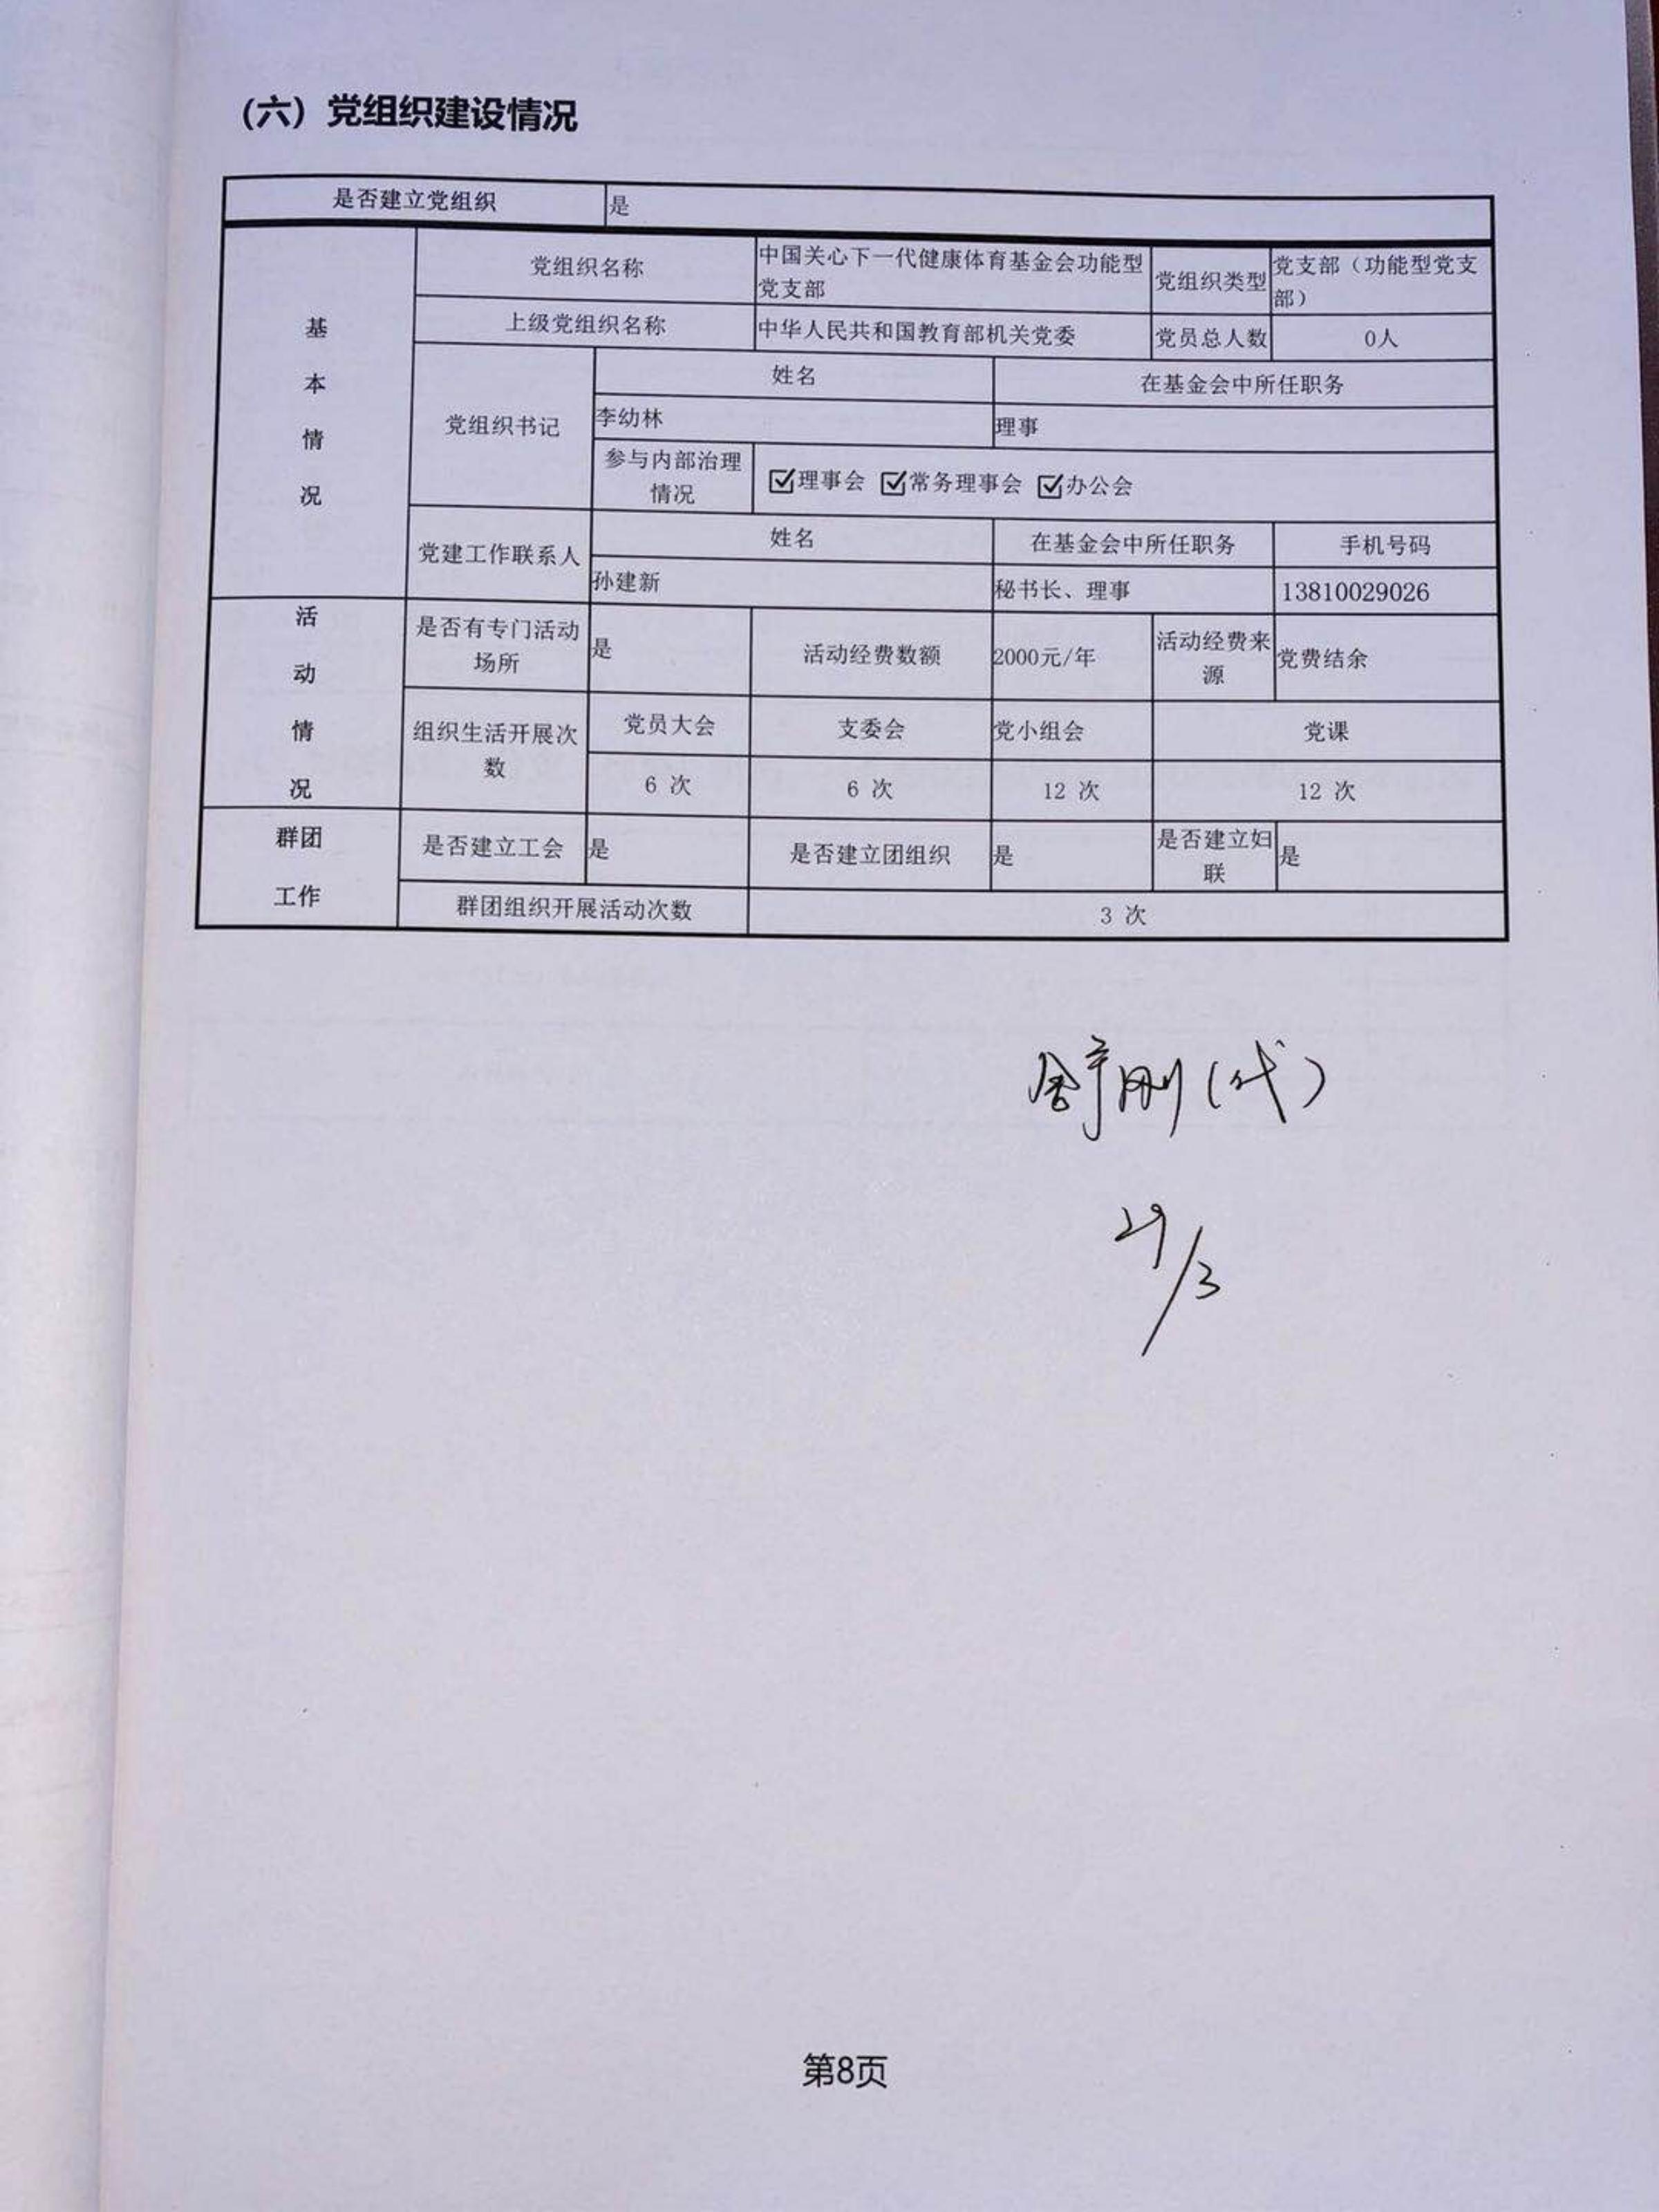 （六）党组织建设情况
是否建立党组织 是
基本情况
党组织名称 中国关心下一代健康体育基金会功能型党支部 党组织类型 党支部（功能型党支部）
上级党组织名称 中华人民共和国教育部机关党委 党员总人数 0人
党组织书记 姓名 在基金会中所任职务
李幼林 理事
参与内部治理情况 ☑理事会 ☑常务理事会 ☑办公会
党建工作联系人 姓名 在基金会中所任职务 手机号码
孙建新 秘书长、理事 13810029026
活动情况
是否有专门活动场所 是 活动经费数额 2000元/年 活动经费来源 党费结余
组织生活开展次数 党员大会 支委会 党小组会 党课
6 次 6 次 12 次 12 次
群团工作
是否建立工会 是 是否建立团组织 是 是否建立妇联 是
群团组织开展活动次数 3 次
舒刚（代）
29/3
第8页